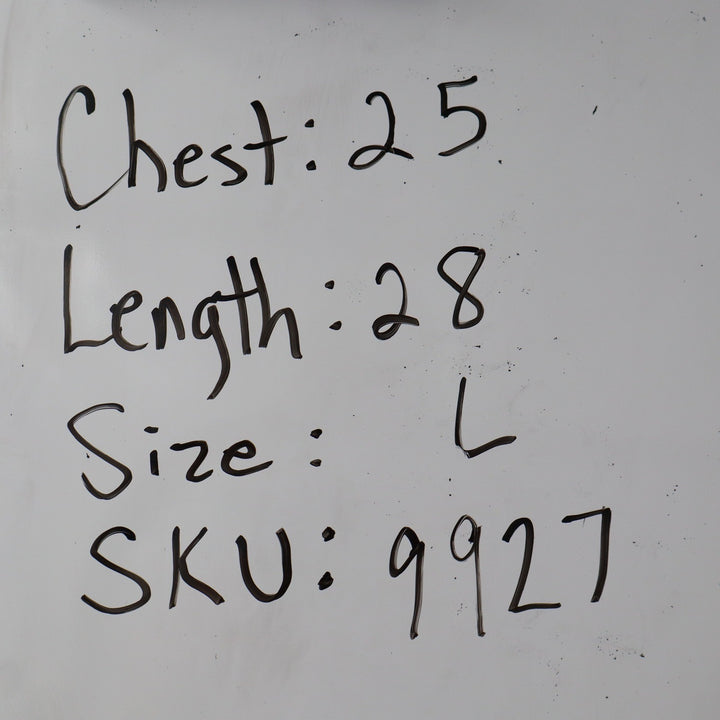 Chest: 25
Length: 28
Size: L
SKU: 9927